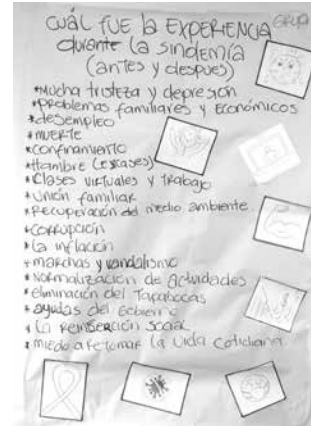 CUÁl FUE la EXPERIENCIA
GRUPO
durante la sindemía
(antes y despues)
*Mucha tristeza y depresión
*Problemas familiares y Económicos
*desempleo
*MUERTE
*confinamiento
*Hambre (escases)
*Clases virtuales y trabajo
*Unión familiar
*Recuperación del medio ambiente.
*Corrupción
*la inflación
*marchas y vandalismo
*Normalización de actividades
*eliminación del Tapabocas
*ayudas del Gobierno
*La reinserción social
*miedo a retomar la vida cotidiana.